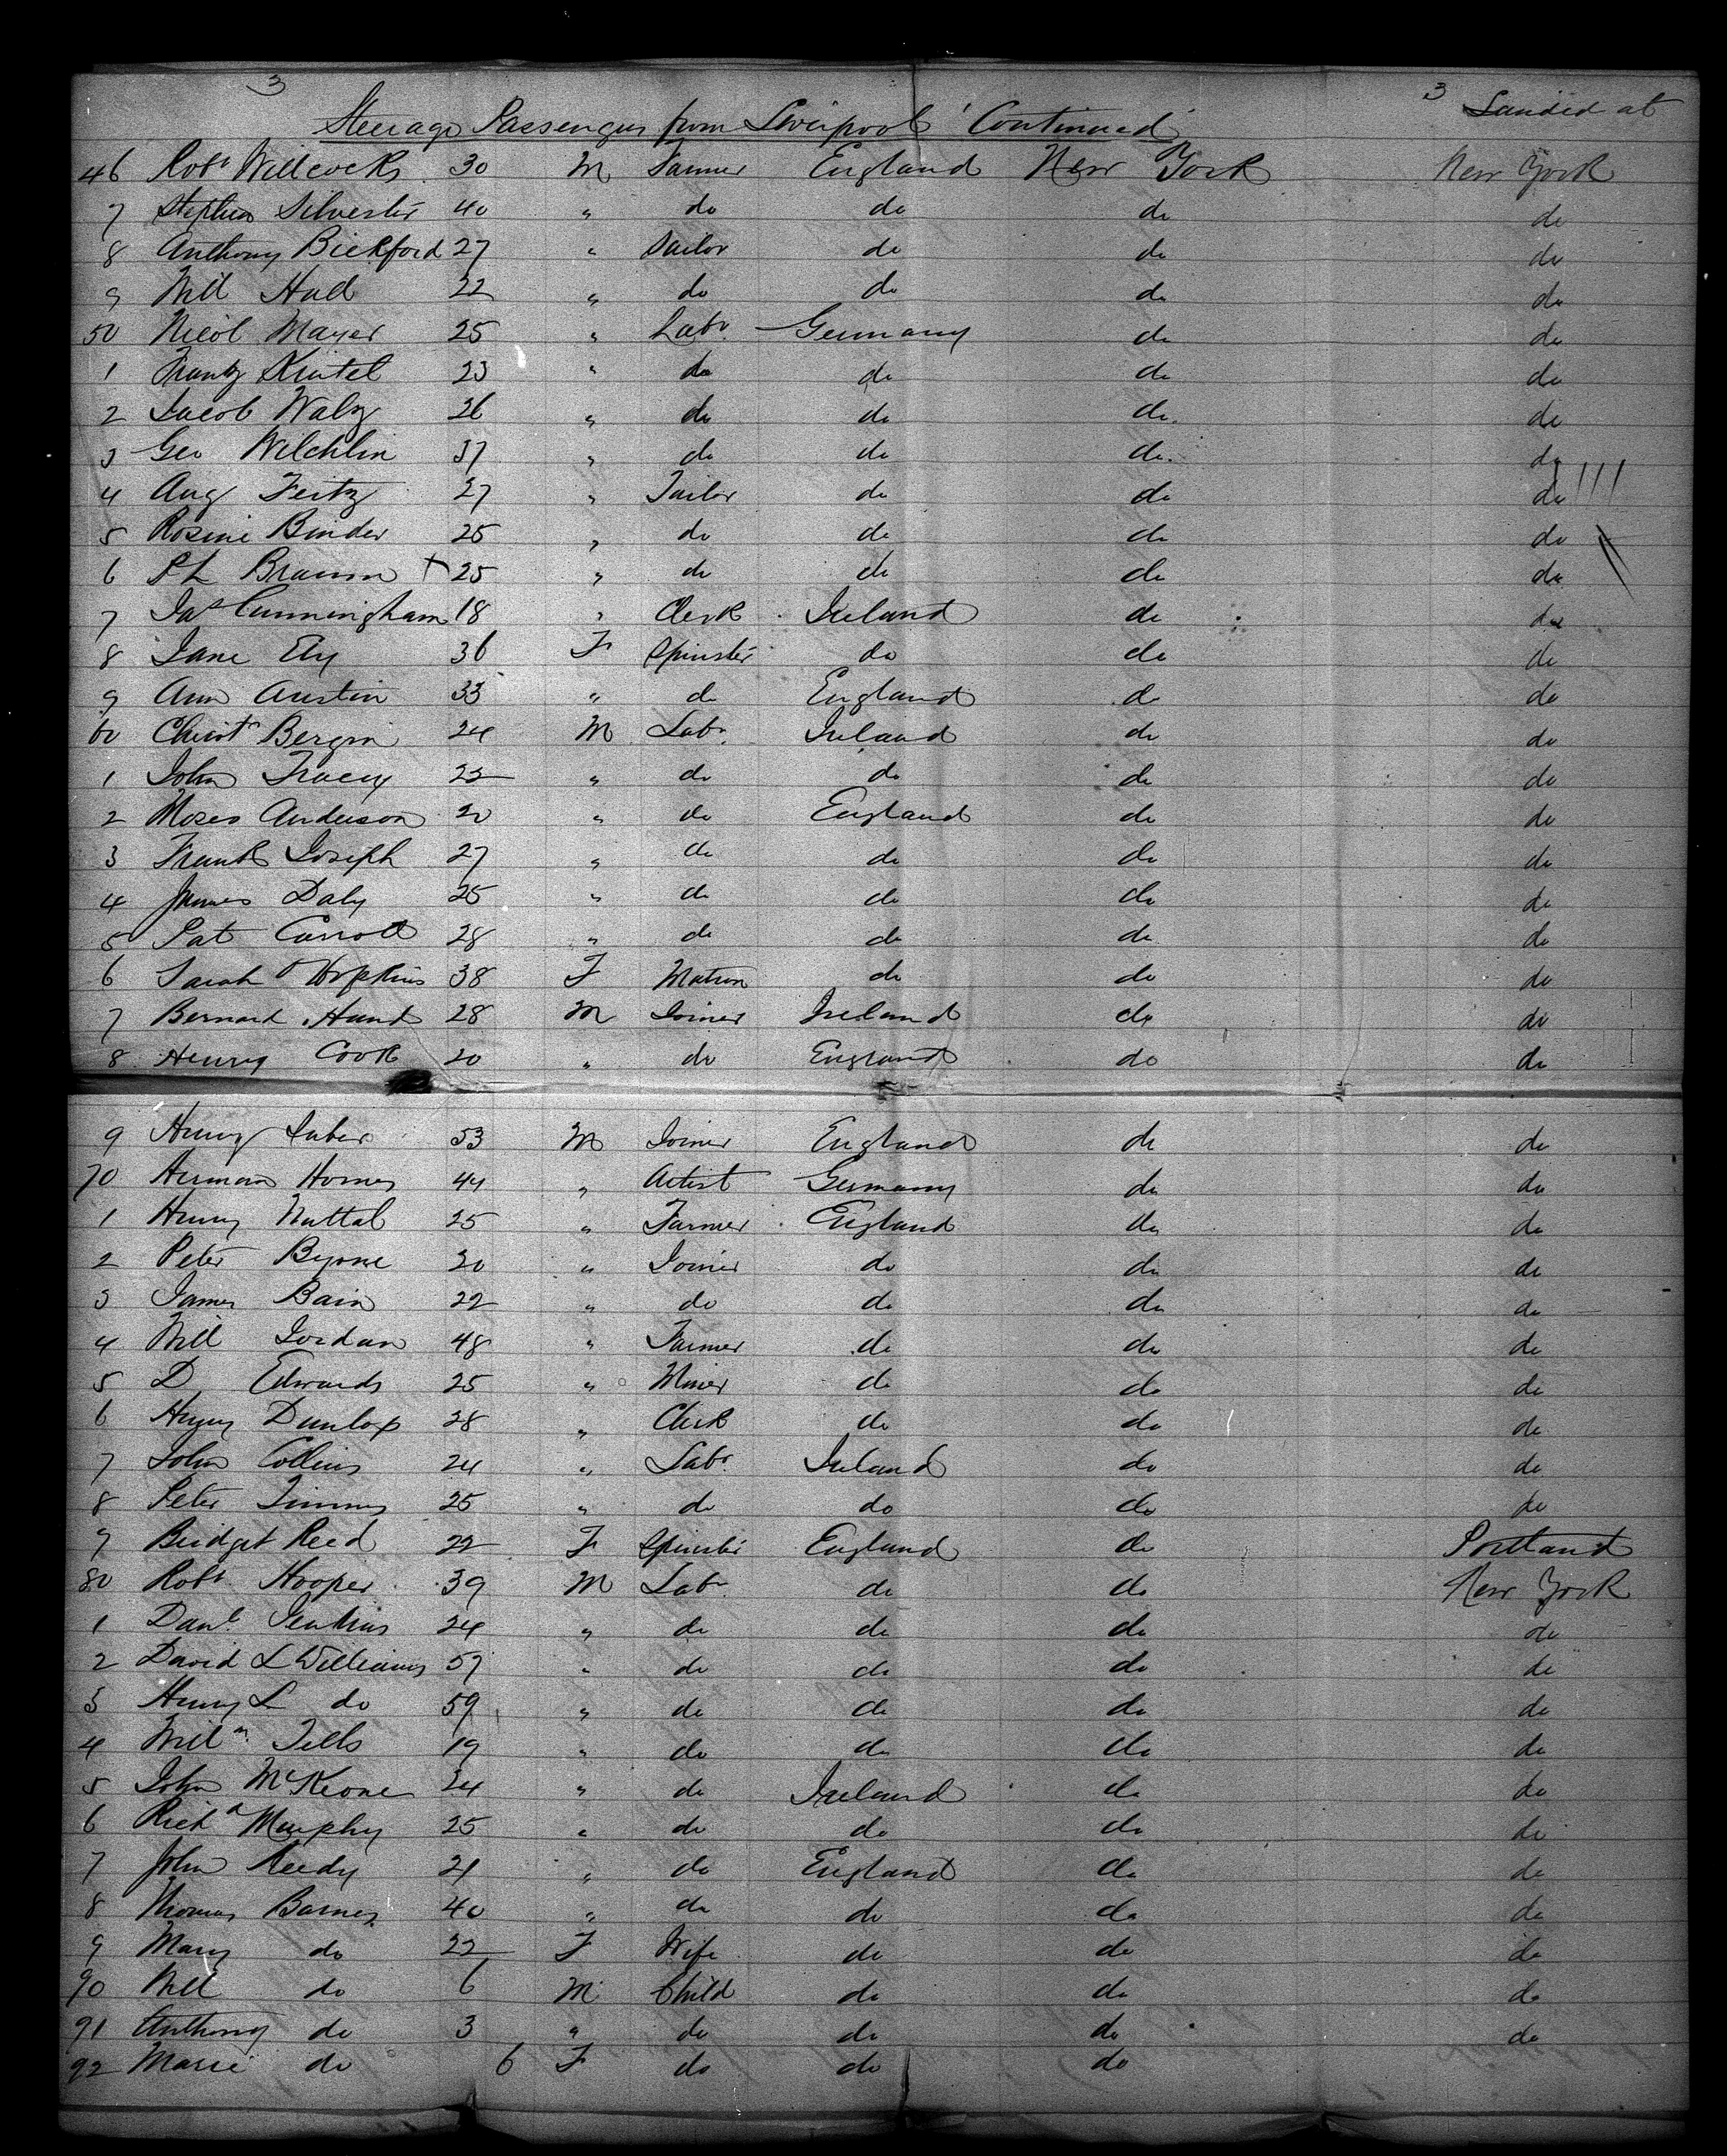 3 3 Landed at
Steerage Passengers from Liverpool "Continued"
46 Robt Willcocks 30 M Farmer England New York New York
7 Stephen Silvester 40 " do do do do
8 Anthony Bickford 27 " Sailor do do do
9 Will Hall 22 " do do do do
50 Nicol Mayer 25 " Labr Germany do do
1 Frantz Kintel 23 " do do do do
2 Jacob Walz 26 " do do do do
3 Geo Welchlin 37 " do do do do
4 Aug Feitz 27 " Tailor do do do
5 Rosine Binder 25 " do do do do
6 Ph Braunn + 25 " do do do do
7 Jas Cunningham 18 " Clerk Ireland do do
8 Jane Ely 36 F Spinster do do do
9 Ann Austin 33 " do England do do
60 Christr Bergin 24 M Labr Ireland do do
1 John Tracey 22 " do do do do
2 Moses Anderson 20 " do England do do
3 Frank Joseph 27 " do do do do
4 James Daly 25 " do do do do
5 Pat Carroll 28 " do do do do
6 Sarah Hopkins 38 F Matron do do do
7 Bernard Hunt 28 M Joiner Ireland do do
8 Henry Cook 20 " do England do do
9 Henry 53 M Joiner England do do
70 Herman Horney 44 " Artist Germany do do
1 Henry Nuttal 25 " Farmer England do do
2 Peter Byrne 20 " Joiner do do do
3 James Bain 22 " do do do do
4 Will Jordan 48 " Farmer do do do
5 D Edwards 25 " Miner do do do
6 Henry Dunlop 28 " Clerk do do do
7 John Collins 24 " Labr Ireland do do
8 Peter Timmes 25 " do do do do
9 Bridget Reed 22 F Spinster England do Portland
80 Robt Hooper 39 M Labr do do New York
1 Danl Jenkins 24 " do do do do
2 David L Williams 57 " do do do do
3 Henry L do 59 " do do do do
4 Willm Tells 19 " do do do do
5 John McKeone 24 " do Ireland do do
6 Richd Murphy 25 " do do do do
7 John Reedy 21 " do England do do
8 Thomas Barnes 40 " do do do do
9 Mary do 22 F Wife do do do
90 Will do 6 M Child do do do
91 Anthony do 3 " do do do do
92 Marie do 6 F do do do